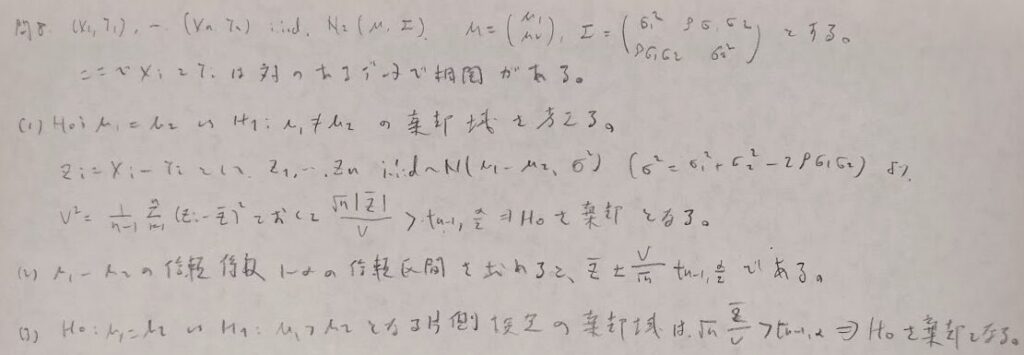 問8. (X₁, Y₁), … (Xn Yn) i.i.d. N₂(μ, Σ). μ = (μ₁ μ₂), Σ = (σ₁² ρσ₁σ₂ ρσ₁σ₂ σ₂²) とする。
ここで Xi と Yi は対のあるデータで相関がある。
(1) H₀: μ₁ = μ₂ vs H₁: μ₁ ≠ μ₂ の棄却域を考える。
Zi = Xi - Yi として Z₁, … Zn i.i.d ~ N(μ₁ - μ₂, σ²) (σ² = σ₁² + σ₂² - 2ρσ₁σ₂) より.
V² = 1/(n-1) Σᵢ₌₁ⁿ (Zi - Z̄)² とおくと √n|Z̄|/V > tn-1, α/2 ⇒ H₀を棄却となる。
(2) μ₁ - μ₂ の信頼係数 1-α の信頼区間を求めると、 Z̄ ± V/√n tn-1, α/2 である。
(3) H₀: μ₁ = μ₂ vs H₁: μ₁ > μ₂ となる片側検定の棄却域は √n Z̄/V > tn-1, α ⇒ H₀を棄却となる。